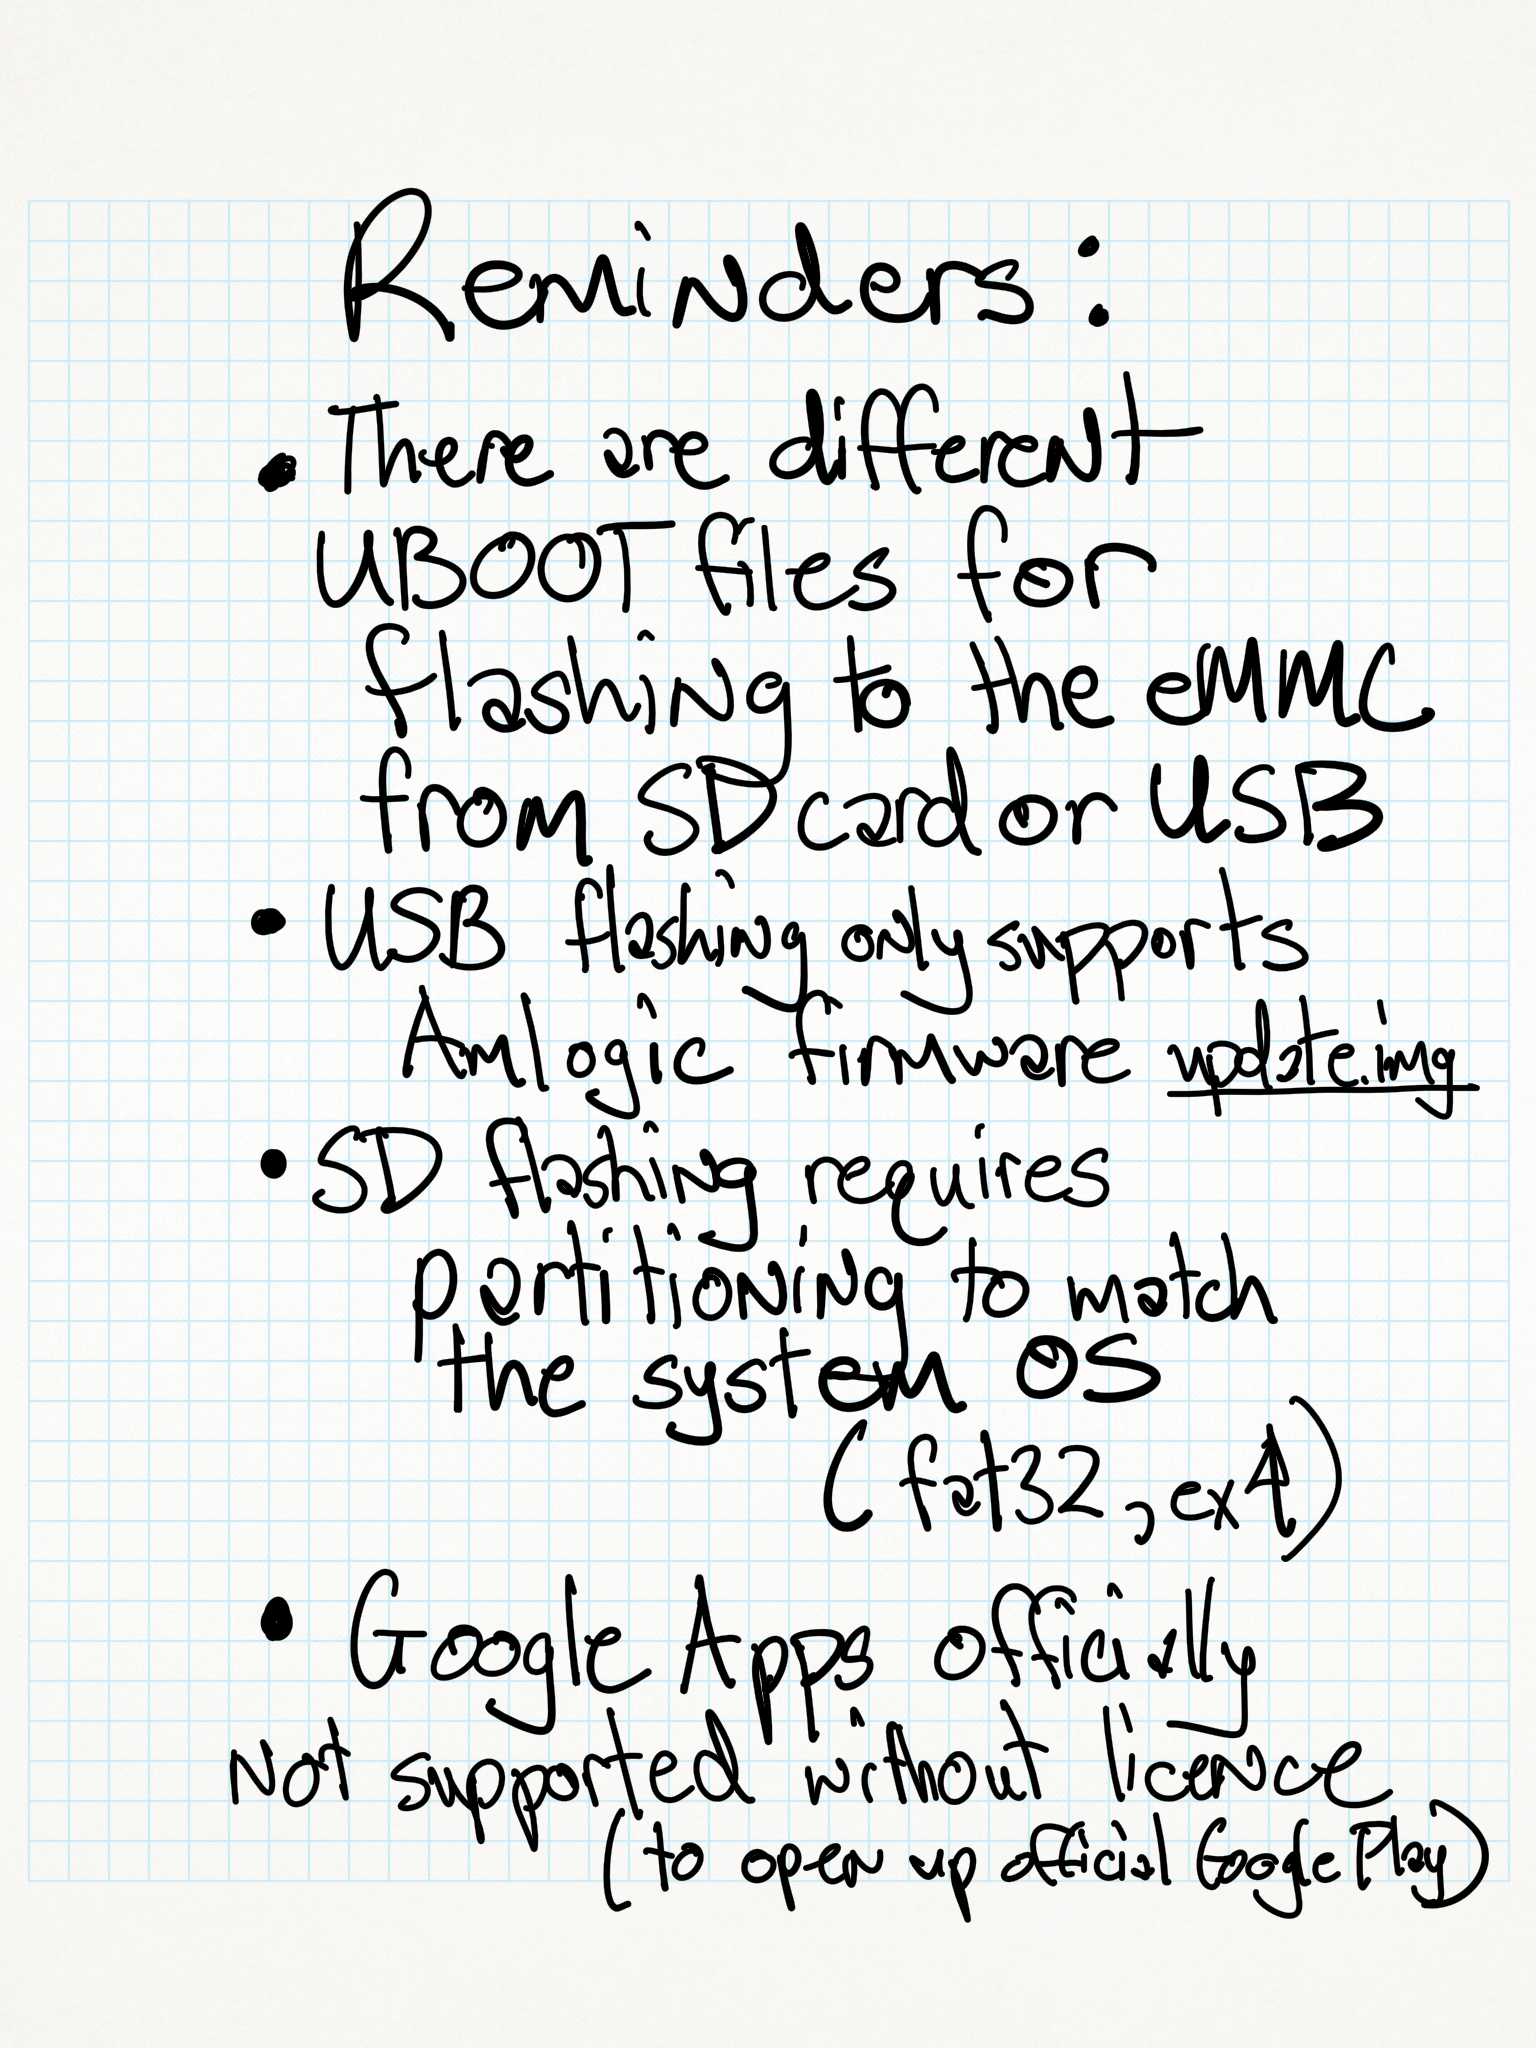 Reminders:
• There are different
UBOOT files for
flashing to the eMMC
from SD card or USB
• USB flashing only supports
Amlogic firmware update.img
• SD flashing requires
partitioning to match
the system OS
(fat32, ex4)
• Google Apps officially
Not supported without licence
(to open up official Google Play)